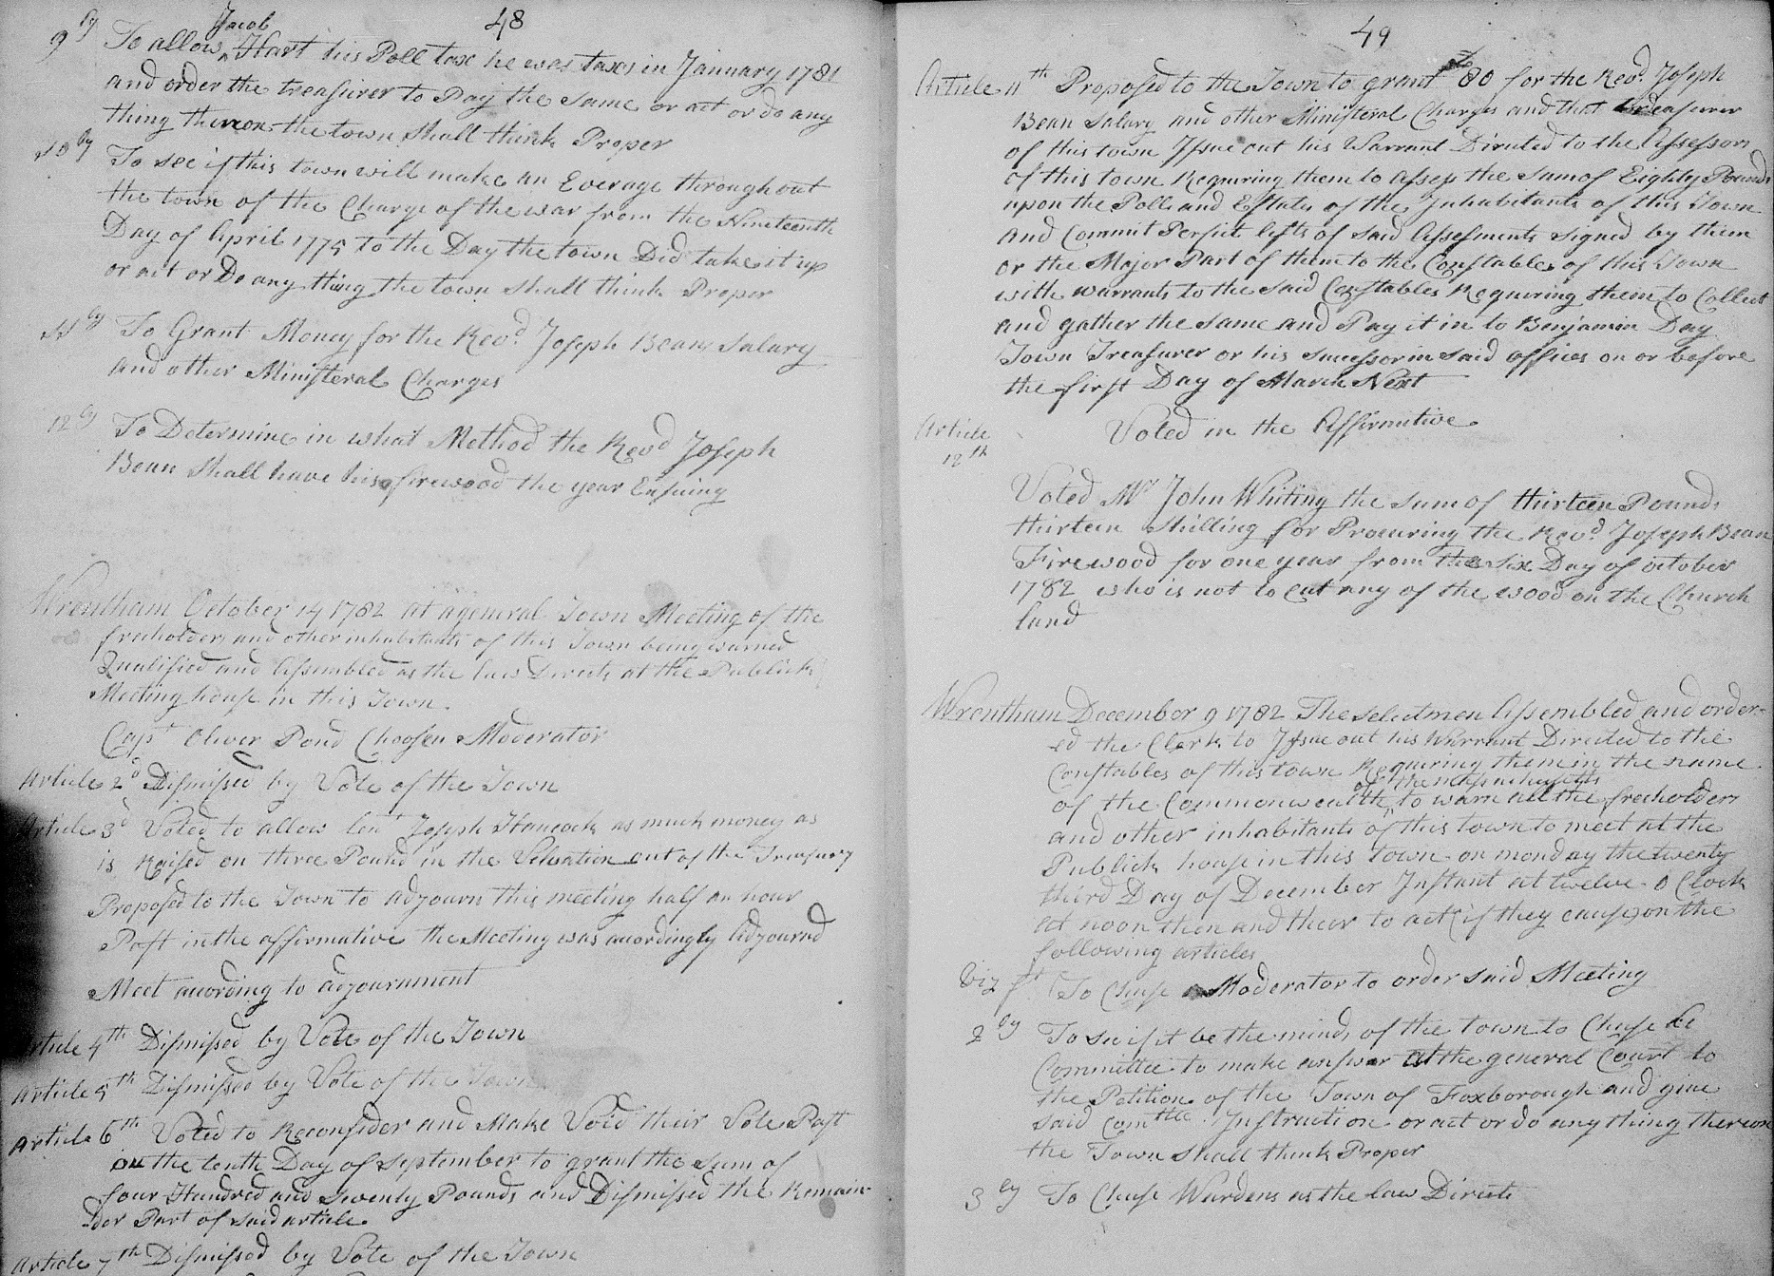 48
9ly To allow Jacob Hart his Poll tax he was taxes in January 1781
and order the treasurer to Pay the same or act or do any
thing thereon the town Shall think Proper
10ly To see if this town will make an Everage throughout
the town of the Charge of the war from the Nineteenth
Day of April 1775 to the Day the town Did take it up
or act or Do any thing the town Shall think Proper
11ly To Grant Money for the Revd Joseph Bean Salary
and other Ministeral Charges
12ly To Determine in what Method the Revd Joseph
Bean Shall have his firewood the year Ensuing
Wrentham October 14 1782 at a general Town Meeting of the
freeholders and other inhabitants of this Town being warned
Qualified and Assembled as the law Directs at the Publick
Meeting house in this Town
Capt Oliver Pond Choosen Moderator
Article 2d Dismissed by Vote of the Town
Article 3d Voted to allow Leut Joseph Hancock as much money as
is Raised on three Pound in the Valuation out of the Treasury
Proposed to the Town to adjourn this meeting half an hour
Past in the affirmative the Meeting was acordingly Adjournd
Meet acording to adjournment
Article 4th Dismissed by Vote of the Town
Article 5th Dismissed by Vote of the Town
Article 6th Voted to Reconsider and Make Void their Vote Past
on the tenth Day of September to grant the sum of
four Hundred and twenty Pounds and Dismissed the Remain-
der Part of said article
Article 7th Dismissed by Vote of the Town
49
Article 11th Proposed to the Town to grant £80 for the Revd Joseph
Bean Salary and other Ministeral Charges and that treasurer
of this town Issue out his Warrant Directed to the Assessors
of this town Requiring them to assess the sum of Eighty Pounds
upon the Polls and Estates of the Inhabitants of this Town
and Commit Perfict lists of said Assessments signed by them
or the Major Part of them to the Constables of this Town
with warrants to the said Constables Requiring them to Collect
and gather the same and Pay it in to Benjamin Day
Town Treasurer or his successor in said offices on or before
the first Day of March Next
Voted in the Affirmative
Article 12th
Voted Mr John Whiting the sum of thirteen Pounds
thirteen shilling for Procuring the Revd Joseph Bean
Firewood for one year from the Six Day of october
1782 who is not to cut any of the wood on the Church
land
Wrentham December 9 1782 The selectmen Assembled and order-
ed the Clerk to Issue out his Warrant Directed to the
Constables of this town Requiring them in the name
of the Commonwealth of the Massachusetts to warn all the freeholders
and other inhabitants of this town to meet at the
Publick house in this town on monday the twenty
third Day of December Instant at twelve o Clock
at noon then and their to act (if they cause) on the
following articles
Viz 1st To Chuse a Moderator to order said Meeting
2ly To see if it be the minds of the town to Chuse a
Committee to make answer at the general Court to
the Petition of the Town of Foxborough and give
said Comttee Instruction or act or do any thing thereon
the Town shall think Proper
3ly To Chuse Wardens as the law Directs